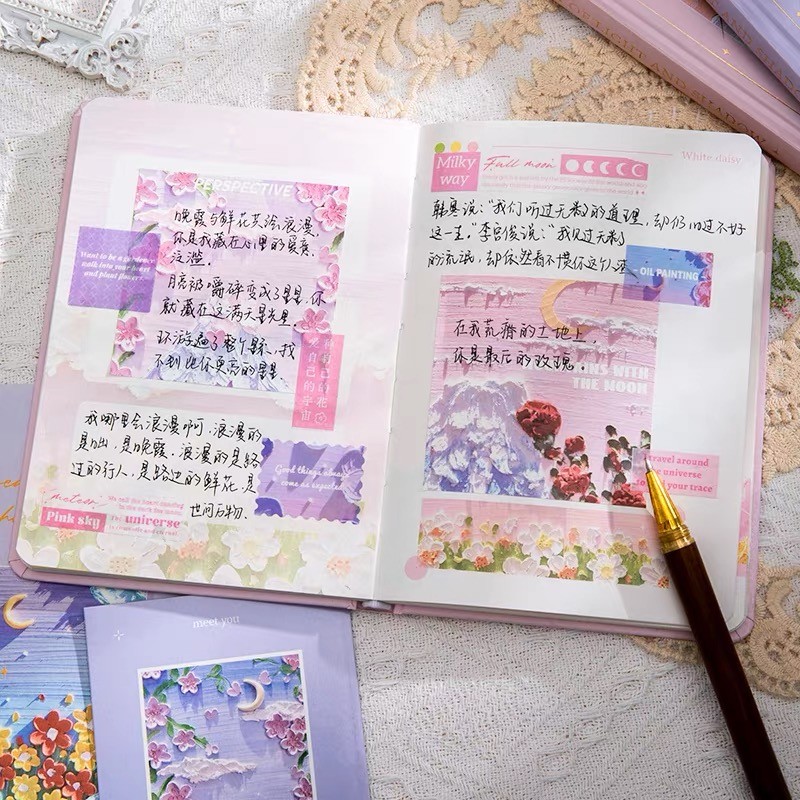 PERSPECTIVE
晚霞与鲜花共绘浪漫,
你是我藏在心里的
泛滥.
月亮被嚼碎变成了星星,你
就藏在这满天星光里
环游遍了整个 ,找
不到比你更亮的星星.
Want to be a gardener,
walk into your heart
and plant flowers
自己的花
自己的宇宙
我哪里会浪漫啊,浪漫的
是日出,是晚霞,浪漫的是路
过的行人,是路边的鲜花,是
世间万物.
Good things always
come as expected
meteor
Pink sky
universe
Milky
way
Full moon
White daisy
韩寒说:“我们听过无数的道理,却仍旧过不好
这一生.”李宫俊说:“我见过无数
的流氓,却依然看不惯你这个渣
OIL PAINTING
在我荒瘠的土地上,
你是最后的玫瑰.
WITH
THE MOON
travel around
the universe
to find your trace
OF LIGHT AND SHADOW
meet you